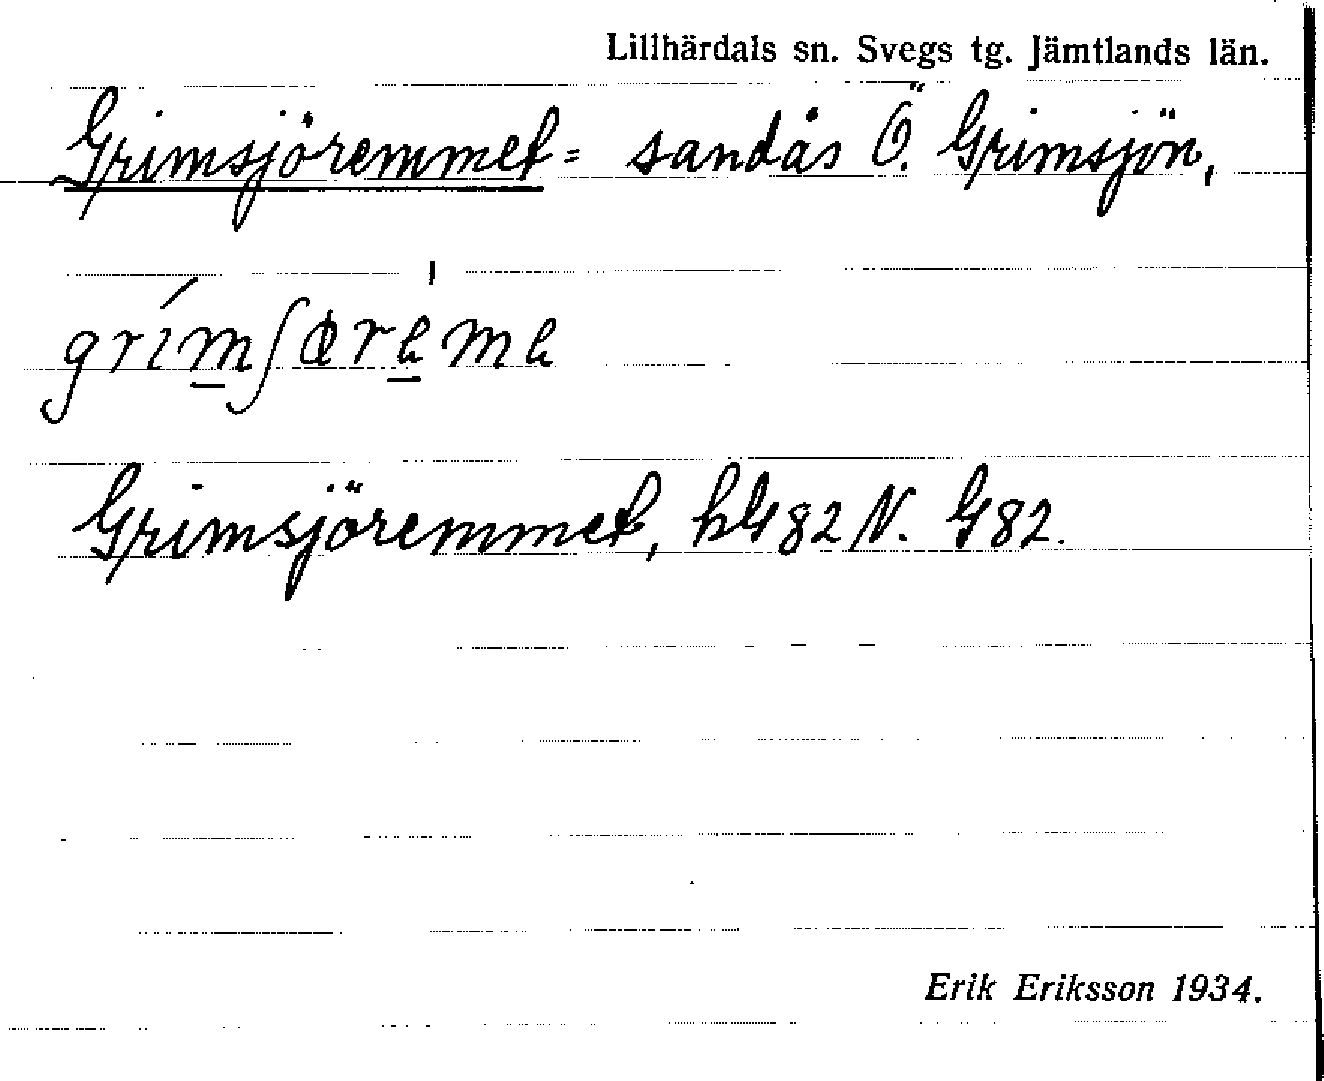 Lillhärdals sn. Svegs tg. Jämtlands län.
Grimsjöremmet = sandås Ö. Grimsjön,
Grimsjöremmet, hG82 N. G82.
Erik Eriksson 1934.